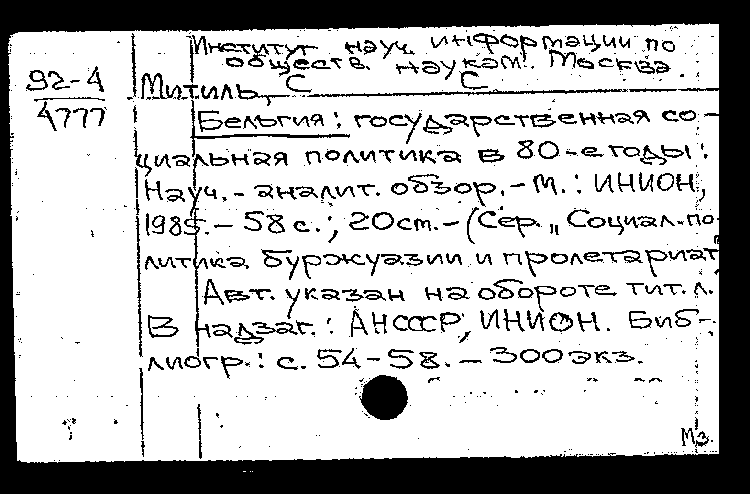 Институт науч. информации по
обществ. наукам. Москва.
92-4
4777
Митиль, С С
Бельгия: государственная со-
циальная политика в 80-е годы:
Науч.-аналит. обзор.-М.: ИНИОН,
1985.-58 с.; 20 см.-(Сер. „Социал.по-
литика буржуазии и пролетариат
Авт. указан на обороте тит. л.
В надзаг.: АНСССР, ИНИОН. Биб-
лиогр.: с. 54-58. - 300 экз.
Мз.